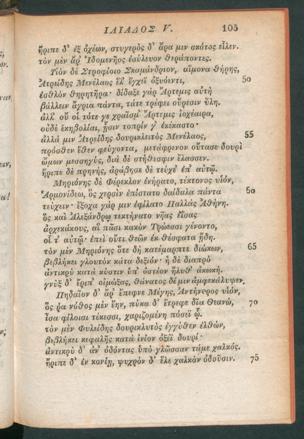 ΙΛΙΑΔΟΣ V. 105
ἤριπε δ' ἐξ ὀχέων, στυγερὸς δ' ἄρα μιν σκότος εἷλεν.
τὸν μὲν ἄρ' Ἰδομενῆος ἐσύλευον θεράποντες.
Υἱὸν δὲ Στροφίοιο Σκαμάνδριον, αἵμονα θήρης,
Ἀτρείδης Μενέλαος ἕλ' ἔγχεϊ ὀξυόεντι, 50
ἐσθλὸν θηρητῆρα· δίδαξε γὰρ Ἄρτεμις αὐτὴ
βάλλειν ἄγρια πάντα, τάτε τρέφει οὔρεσιν ὕλη.
ἀλλ' οὔ οἱ τότε γε χραῖσμ' Ἄρτεμις ἰοχέαιρα,
οὐδὲ ἑκηβολίαι, ᾗσιν τοπρίν γ' ἐκέκαστο·
ἀλλά μιν Ἀτρείδης δουρικλειτὸς Μενέλαος, 55
πρόσθεν ἕθεν φεύγοντα, μετάφρενον οὔτασε δουρὶ
ὤμων μεσσηγὺς, διὰ δὲ στήθεσφιν ἔλασσεν.
ἤριπε δὲ πρηνὴς, ἀράβησε δὲ τεύχε' ἐπ' αὐτῷ.
Μηριόνης δὲ Φέρεκλον ἐνήρατο, τέκτονος υἱὸν,
Ἁρμονίδεω, ὃς χερσὶν ἐπίστατο δαίδαλα πάντα 60
τεύχειν· ἔξοχα γάρ μιν ἐφίλατο Παλλὰς Ἀθήνη.
ὃς καὶ Ἀλεξάνδρῳ τεκτήνατο νῆας ἐΐσας
ἀρχεκάκους, αἳ πᾶσι κακὸν Τρώεσσι γένοντο,
οἵ τ' αὐτῷ· ἐπεὶ οὔτι θεῶν ἐκ θέσφατα ᾔδη.
τὸν μὲν Μηριόνης ὅτε δὴ κατέμαρπτε διώκων, 65
βεβλήκει γλουτὸν κάτα δεξιόν· ἡ δὲ διαπρὸ
ἀντικρὺ κατὰ κύστιν ὑπ' ὀστέον ἤλυθ' ἀκωκή.
γνὺξ δ' ἔριπ' οἰμώξας, θάνατος δέ μιν ἀμφεκάλυψεν.
Πηδαῖον δ' ἄρ' ἔπεφνε Μέγης, Ἀντήνορος υἱὸν,
ὅς ῥα νόθος μὲν ἔην, πύκα δ' ἔτρεφε δῖα Θεανὼ, 70
ἶσα φίλοισι τέκεσσι, χαριζομένη πόσεϊ ᾧ.
τὸν μὲν Φυλείδης δουρικλυτὸς ἐγγύθεν ἐλθὼν,
βεβλήκει κεφαλῆς κατὰ ἰνίον ὀξέϊ δουρί·
ἀντικρὺ δ' ἀν' ὀδόντας ὑπὸ γλῶσσαν τάμε χαλκός.
ἤριπε δ' ἐν κονίῃ, ψυχρὸν δ' ἕλε χαλκὸν ὀδοῦσιν. 75